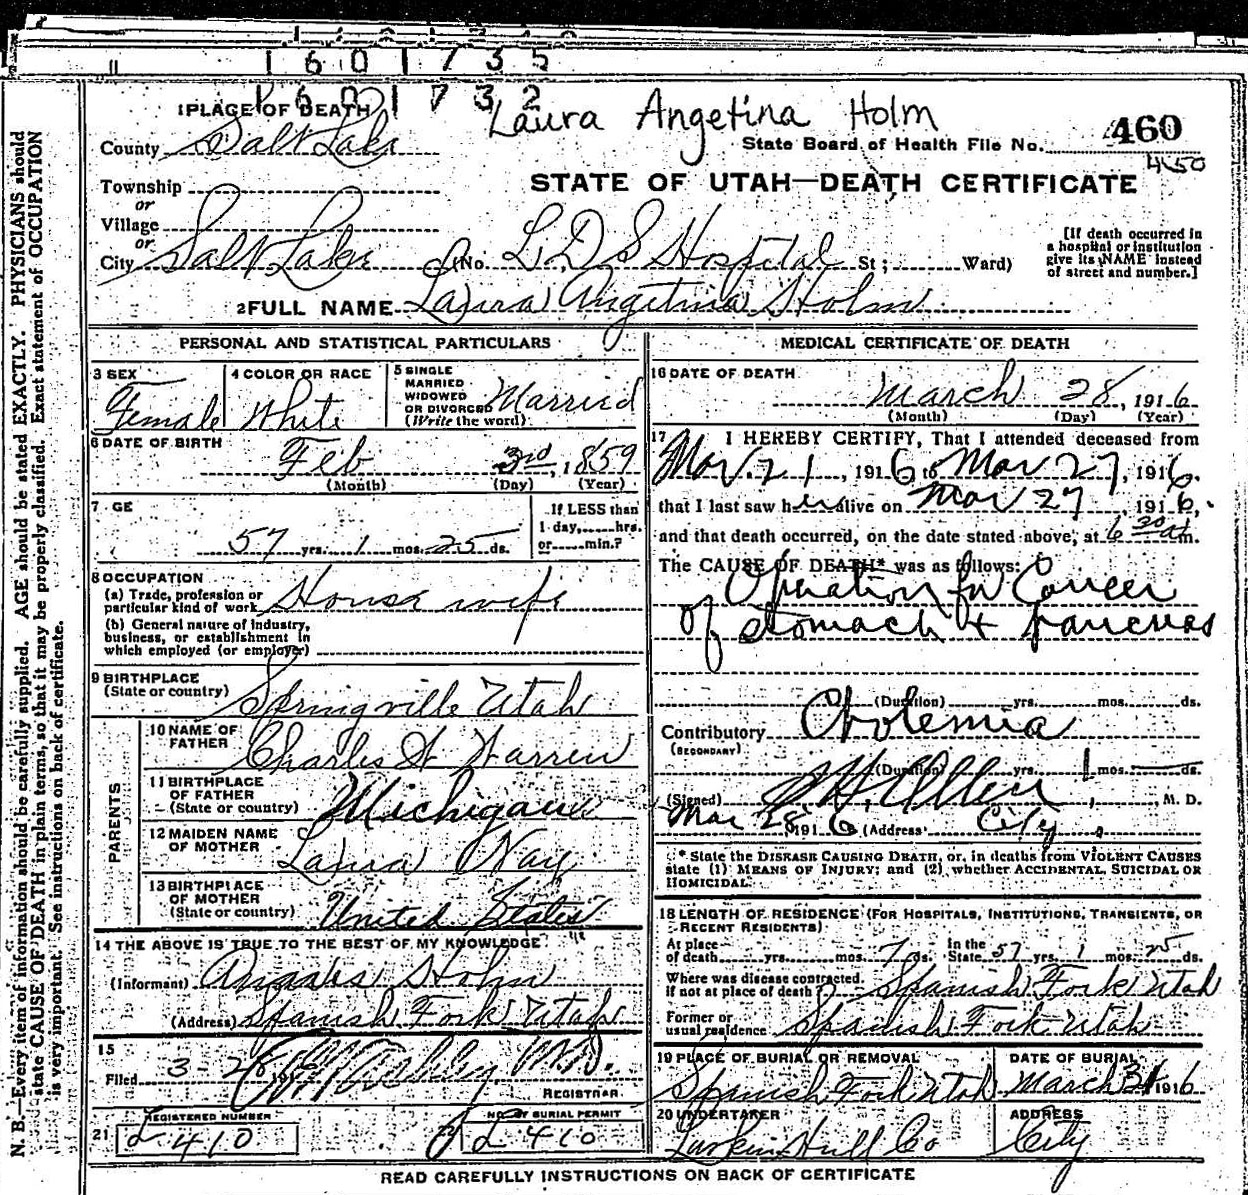 1601735
1601732
Laura Angetina Holm
1 PLACE OF DEATH
County Salt Lake
State Board of Health File No. 460
450
Township
or
Village
or
City Salt Lake
STATE OF UTAH—DEATH CERTIFICATE
(No. L D S Hospital St; Ward)
[If death occurred in
a hospital or institution
give its NAME instead
of street and number.]
2 FULL NAME Laura Angetina Holm
PERSONAL AND STATISTICAL PARTICULARS
3 SEX
Female
4 COLOR OR RACE
White
5 SINGLE
MARRIED
WIDOWED
OR DIVORCED
(Write the word)
Married
6 DATE OF BIRTH
Feb 3rd, 1859
(Month) (Day) (Year)
7 GE
57 yrs. 1 mos. 25 ds.
If LESS than
1 day, hrs.
or min.?
8 OCCUPATION
(a) Trade, profession or
particular kind of work House wife
(b) General nature of industry,
business, or establishment in
which employed (or employer)
9 BIRTHPLACE
(State or country) Springville Utah
PARENTS
10 NAME OF
FATHER Charles Warren
11 BIRTHPLACE
OF FATHER
(State or country) Michigan
12 MAIDEN NAME
OF MOTHER Laura
13 BIRTHPLACE
OF MOTHER
(State or country) United States
14 THE ABOVE IS TRUE TO THE BEST OF MY KNOWLEDGE
(Informant) Holm
(Address) Spanish Fork Utah
15
Filed 3-28 M.D.
REGISTRAR
REGISTERED NUMBER
NO. OF BURIAL PERMIT
21 d 410
d 410
MEDICAL CERTIFICATE OF DEATH
16 DATE OF DEATH
March 28, 1916
(Month) (Day) (Year)
17 I HEREBY CERTIFY, That I attended deceased from
Mar. 21, 1916 to Mar 27, 1916.
that I last saw her alive on Mar 27, 1916,
and that death occurred, on the date stated above, at 6 30 am.
The CAUSE OF DEATH* was as follows:
Operation for Cancer
of stomach & pancreas
(Duration) yrs. mos. ds.
Contributory Cholemia
(SECONDARY)
(Duration) yrs. 1 mos. — ds.
(Signed) Allen, M. D.
Mar 28, 1916 (Address) City
* State the DISEASE CAUSING DEATH, or, in deaths from VIOLENT CAUSES
state (1) MEANS OF INJURY; and (2) whether ACCIDENTAL, SUICIDAL OR
HOMICIDAL.
18 LENGTH OF RESIDENCE (FOR HOSPITALS, INSTITUTIONS, TRANSIENTS, OR
RECENT RESIDENTS)
At place
of death yrs. mos. 7 ds.
In the
State 57 yrs. 1 mos. 25 ds.
Where was disease contracted,
if not at place of death? Spanish Fork Utah
Former or
usual residence Spanish Fork Utah
19 PLACE OF BURIAL OR REMOVAL
Spanish Fork Utah
DATE OF BURIAL
March 31 1916
20 UNDERTAKER
Larkin Hull Co
ADDRESS
City
READ CAREFULLY INSTRUCTIONS ON BACK OF CERTIFICATE
N. B.—Every item of information should be carefully supplied. AGE should be stated EXACTLY. PHYSICIANS should
state CAUSE OF DEATH in plain terms, so that it may be properly classified. Exact statement of OCCUPATION
is very important. See instructions on back of certificate.